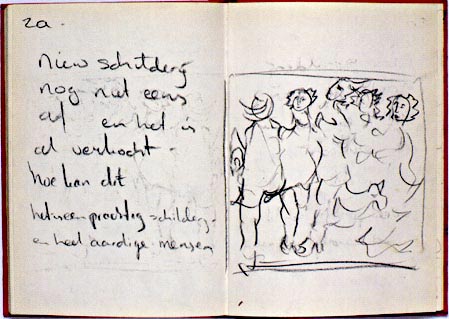 za.
nieuw schilderij
nog niet eens
af en het is
al verkocht.
hoe kan dit
het is een prachtig schilderij
en heel aardige mensen